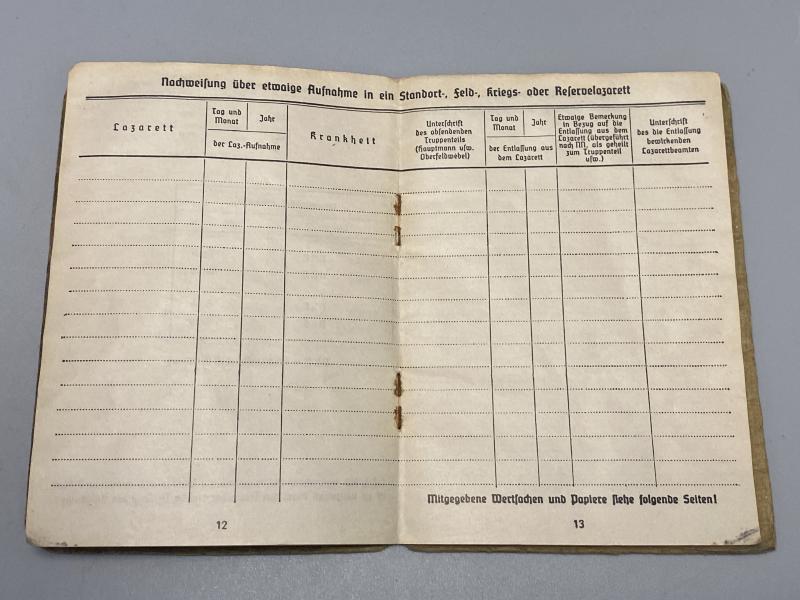 Nachweisung über etwaige Aufnahme in ein Standort-, Feld-, Kriegs- oder Reservelazarett
Lazarett
Tag und
Monat
Jahr
der Laz.-Aufnahme
Krankheit
Unterschrift
des absendenden
Truppenteils
(Hauptmann usw.
Oberfeldwebel)
Tag und
Monat
Jahr
der Entlassung aus
dem Lazarett
Etwaige Bemerkung
in Bezug auf die
Entlassung aus dem
Lazarett (übergeführt
nach NN, als geheilt
zum Truppenteil
usw.)
Unterschrift
des die Entlassung
bewirkenden
Lazarettbeamten
Mitgegebene Wertsachen und Papiere siehe folgende Seiten!
12
13